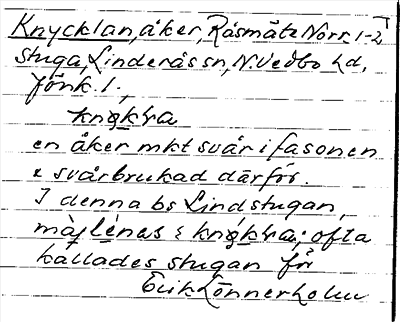 Knycklan, åker, Råsmåta Norr. 1-2
stuga, Linderås sn, N.Vedbo hd,
Jönk. l.,
en åker mkt svår i fasonen
& svårbrukad därför.
I denna bs Lindstugan,
ofta
kallades stugan för
Erik Lönnerholm